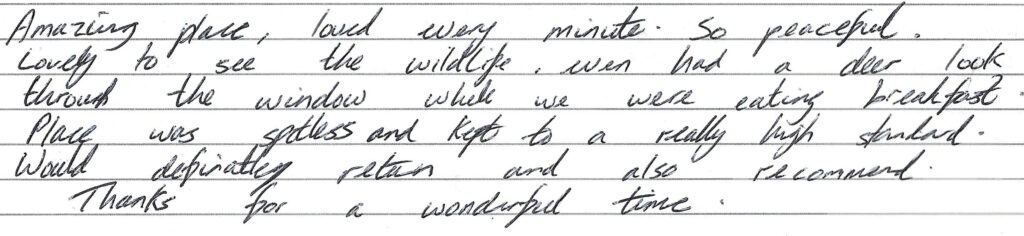 Amazing place, loved every minute. So peaceful.
Lovely to see the wildlife. even had a deer look
through the window while we were eating breakfast.
Place was spotless and kept to a really high standard.
Would definatley return and also recommend.
Thanks for a wonderful time.